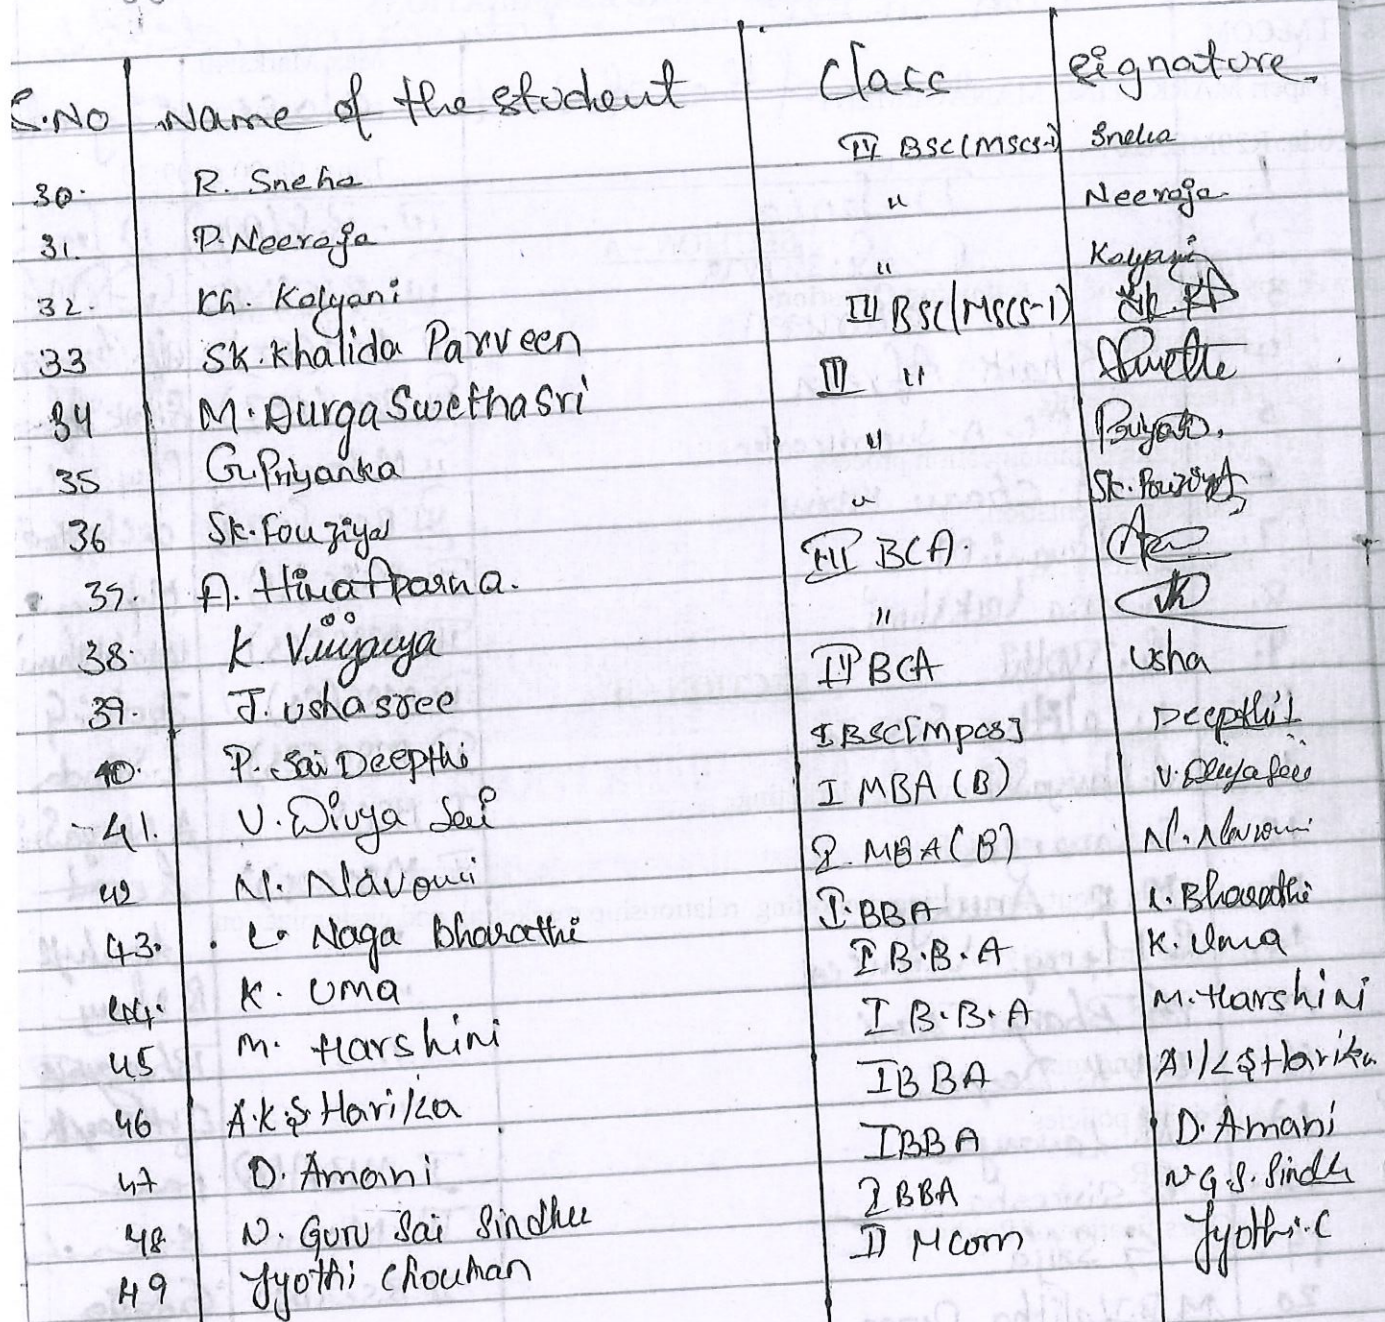 S.No Name of the student Class Signature.
30. R. Sneha III BSC(MSCS-1) Sneha
31. P. Neeraja " Neeraja
32. Ch. Kalyani " Kalyani
33 SK. Khalida Parveen III BSC(MSCS-1) SK.
34 M. Durga Swetha Sri III " Swetha
35 G. Priyanka "
36 Sk. Fouziya " Sk. Fouziya
37. A. Hima Aparna. III BCA.
38. K. Vijaya "
39. J. Ushasree III BCA Usha
40. P. Sai Deepthi I BSC[MPCS] Deepthi
41. V. Divya Sai I MBA (B)
42 N. Navomi I MBA (B) N. Navomi
43. L. Naga Bharathi I. BBA L. Bharathi
44. K. Uma I B.B.A K. Uma
45 M. Harshini I B.B.A M. Harshini
46 A.K.S Harika I BBA A.K.S Harika
47 D. Amani I BBA D. Amani
48 N. Guru Sai Sindhu I BBA N G.S. Sindhu
49 Jyothi Chouhan II M com Jyothi.C